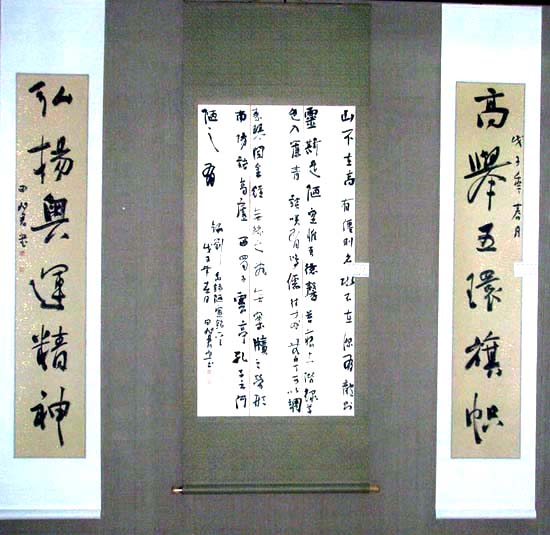 高舉五環旗幟
戊子年春月
山不在高有僊則名水不在深有龍則
靈斯是陋室惟吾德馨苔痕上階綠草
色入簾青談笑有鴻儒往來無白丁可以調
素琴閱金經無絲之亂無案牘之勞形
南陽諸葛廬西蜀子雲亭孔子云何
陋之有
錄劉禹錫陋室銘
戊子年春月田
弘揚奧運精神
田